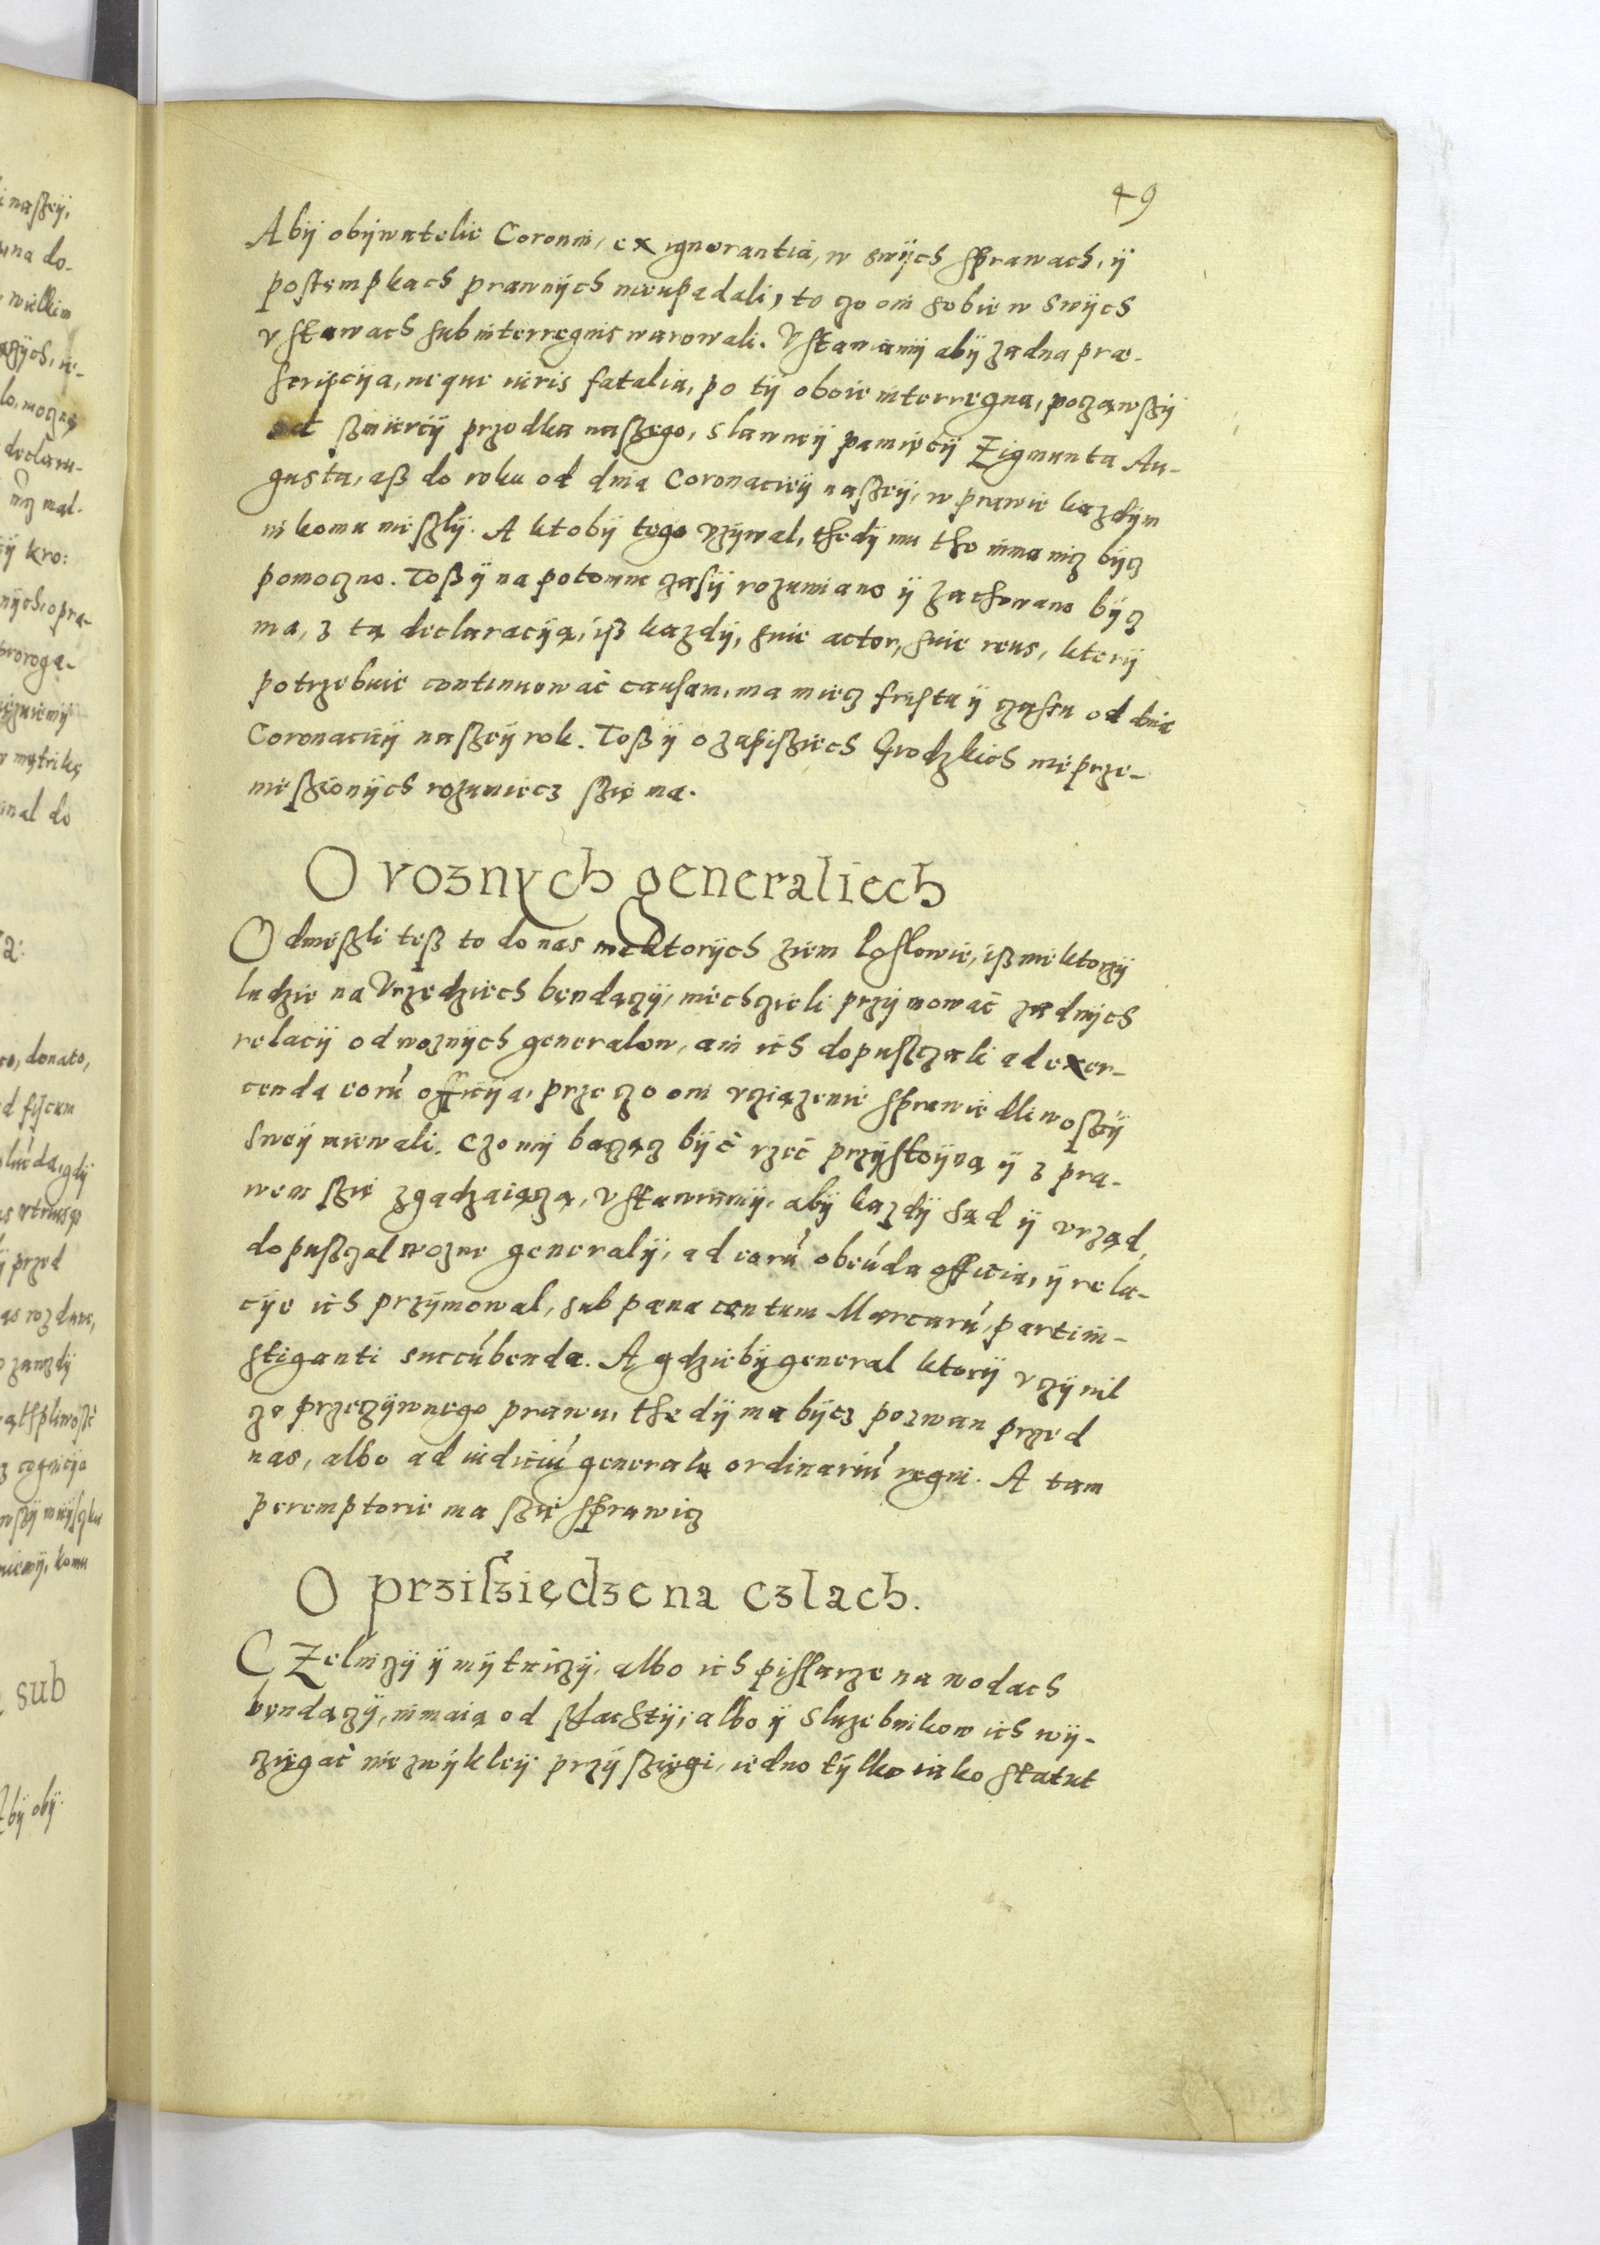 49
Abÿ obÿwatelie Coronni, ex ignorantia, w swÿch sprawach, ÿ
postempkach prawnÿch nieupadali, to czo oni sobie w swÿch
vstawach sub interregnis warowali. Vstawiamÿ abÿ zadna præ-
scripcÿa, neque iuris fatalia, po tÿ oboie interregna, poczawszÿ
od szmiercÿ przodka naszego, slawneÿ pamięcÿ Zigmunta Au-
gusta, aß do roku od dnia Coronacieÿ naszeÿ, w prawie kazdÿm
nikomu nieszlÿ. A ktobÿ tego vzÿwal, thedÿ mu tho nima nicz bÿcz
pomoczno. Toß ÿ na potomne czasÿ rozumiano ÿ zachowano bÿcz
ma, z tą declaracÿą, iß kazdÿ, siue actor, siue reus, ktorÿ
potrzebuie continuowac causam, ma miecz frista ÿ czasu od dnia
Coronaciÿ naszeÿ rok. Toß ÿ o zapiszięch Grodzkich nieprze-
nieszionÿch rozumiecz szie ma.
O voznych generaliech
Odnieszli teß to do nas niektorÿch ziem Posłowie, iß niektorzÿ
ludzie na Vrzędziech bendączÿ, niechczieli przÿmowac zadnÿch
relacÿ od woznÿch generalow, ani ich dopusczali ad exer-
cenda eorū officÿa, przeczo oni vcziązenie sprawiedliwosczÿ
sweÿ miewali. Czo mÿ bacząz bÿć rzeć przÿstoÿną ÿ z pra-
wem szie zgadzaiączą, vstawuiemÿ, abÿ kazdÿ sąd ÿ vrząd,
dopusczal wozne generalÿ, ad eorū obeūda officia, ÿ rela-
cÿe ich przÿmowal, sub pæna centum Marcarū, parti in-
stiganti succūbenda. A gdziebÿ general ktorÿ vczÿnil
czo przeczÿwnego prawu, thedÿ ma bÿcz pozwan przed
nas, albo ad iudiciū generale ordinariū regni. A tam
peremptorie ma szie sprawicz
O prziſziędze na czlach.
CZelniczÿ ÿ mÿtniczÿ, albo ich pissarze na wodach
bendączÿ, nimaią od szlachtÿ, albo ÿ sluzebnikow ich wÿ-
cziegać niezwÿkleÿ przÿszięgi, iedno tÿlko iako statut